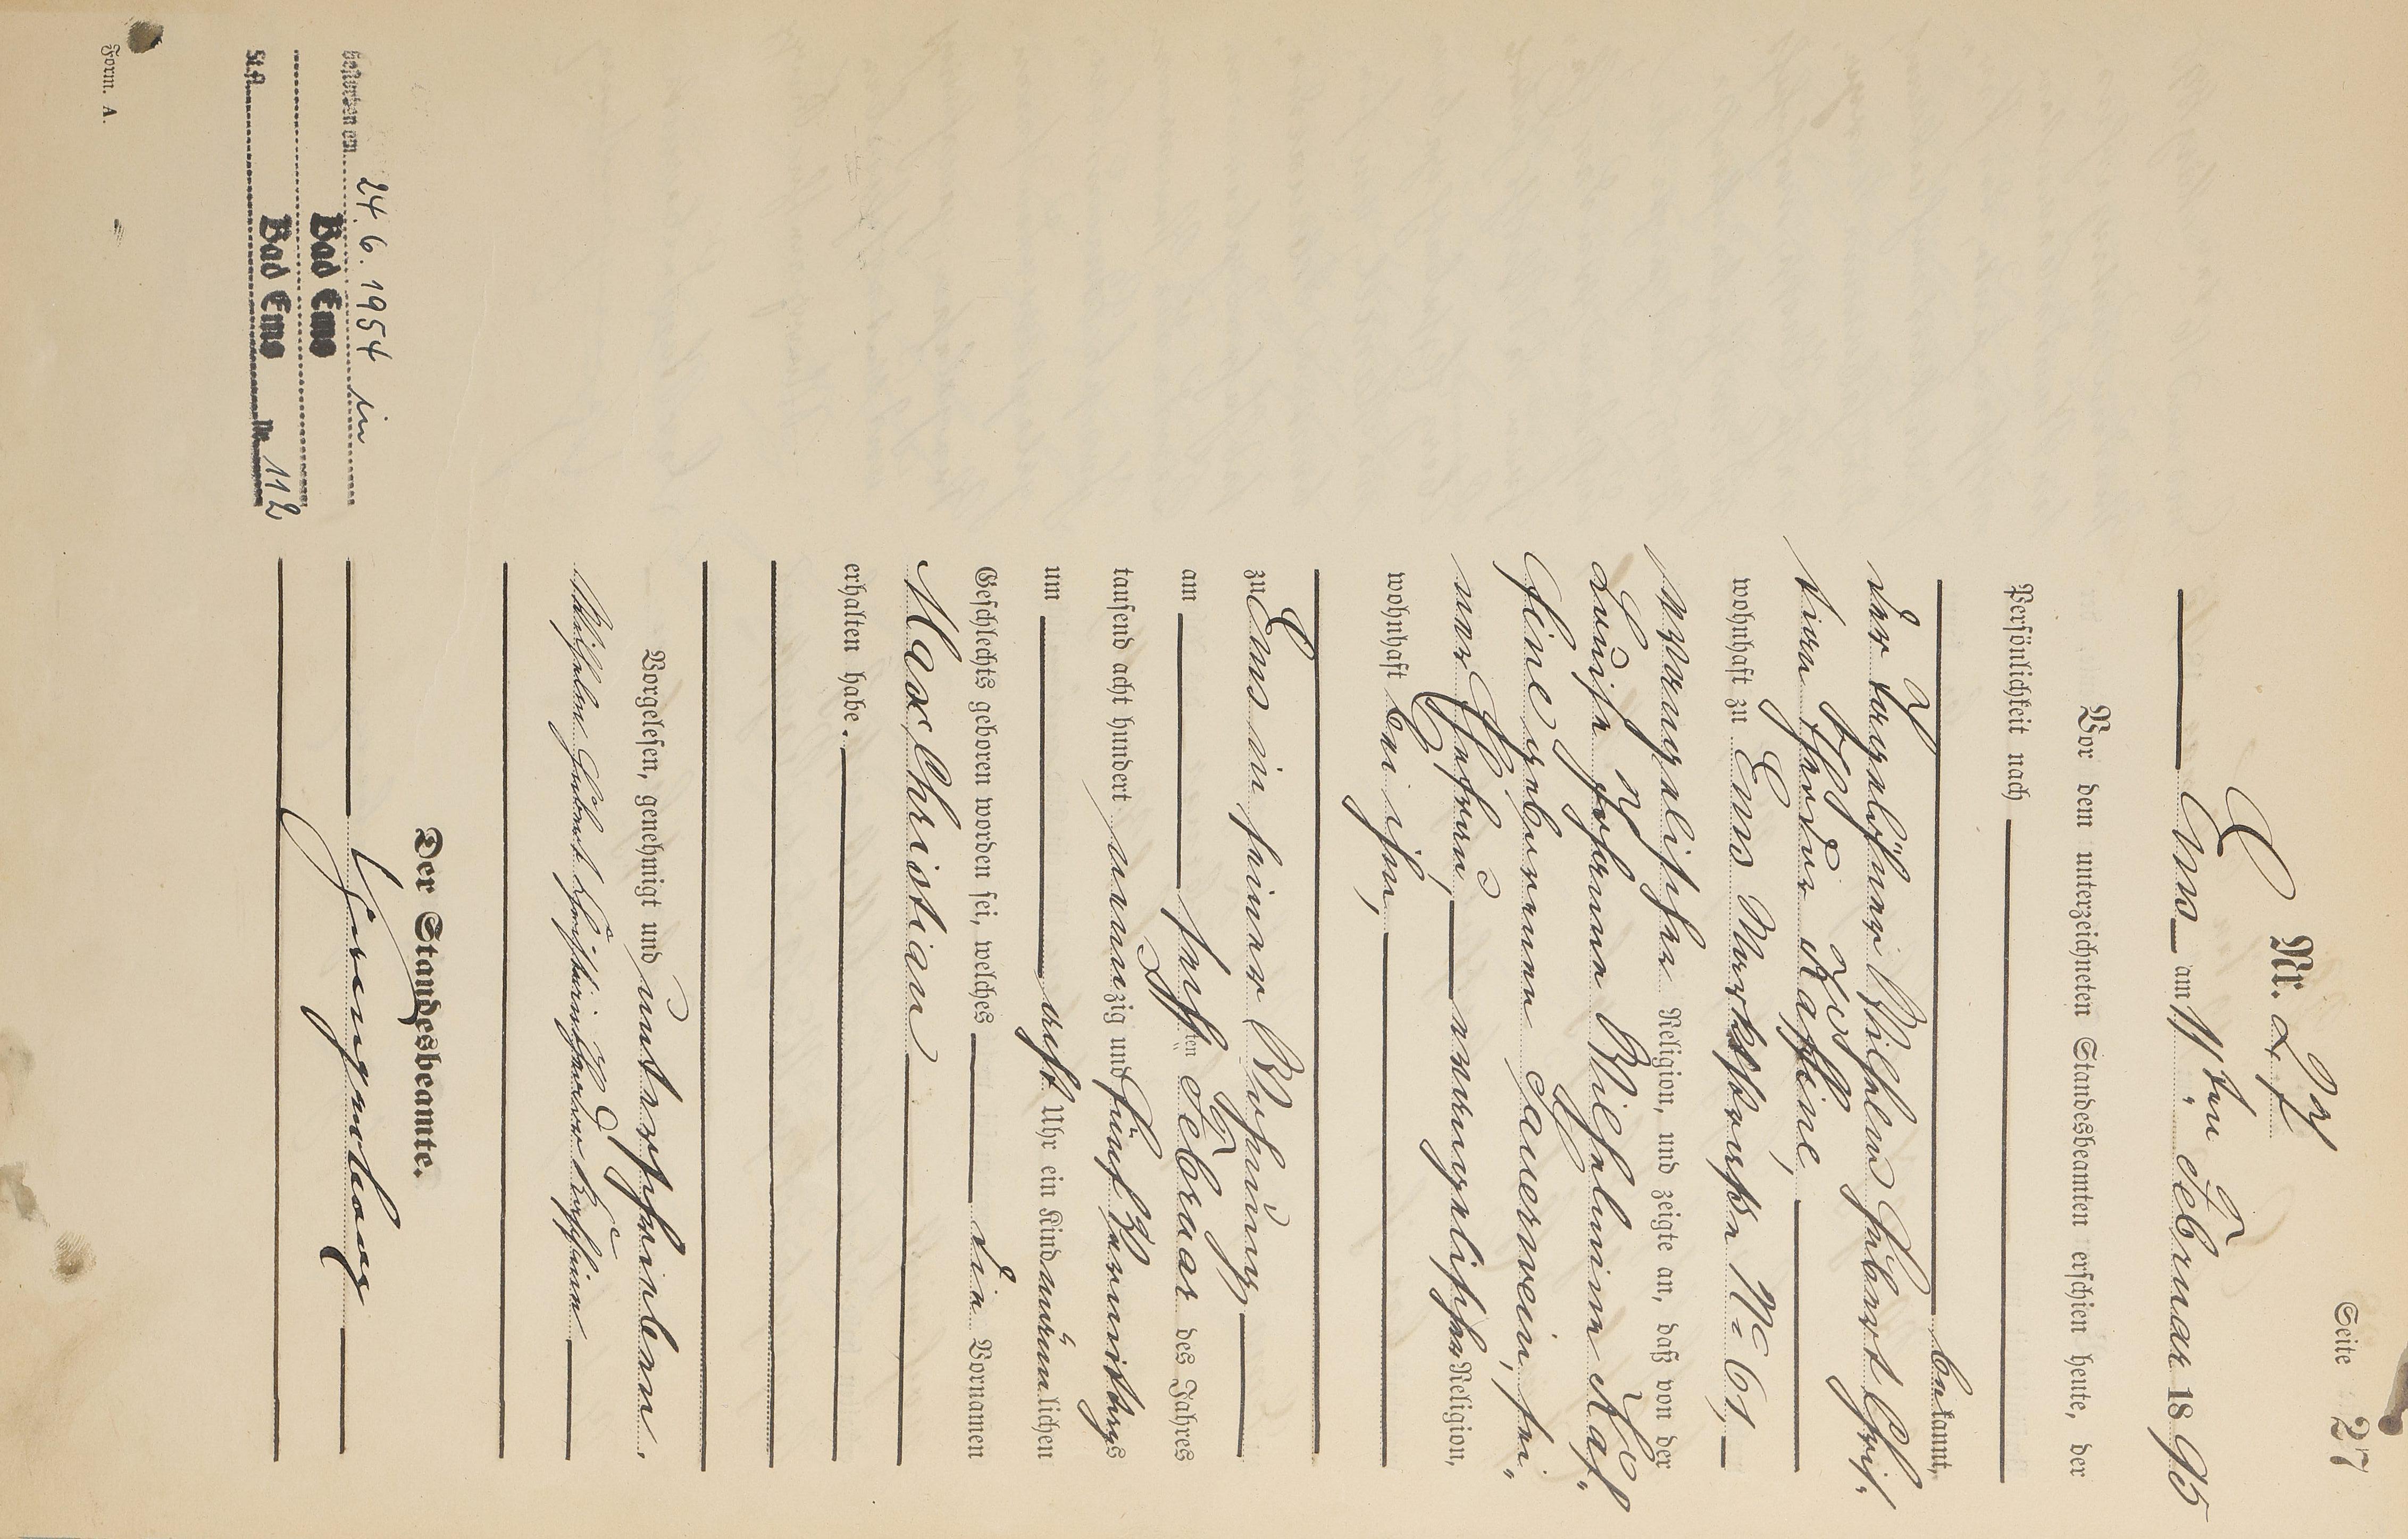 Seite 27
Nr. 27
Ems am 11ten Februar 1895
Vor dem unterzeichneten Standesbeamten erschien heute, der
Persönlichkeit nach
bekannt,
der Tagelöhner Wilhelm Hubert Chri-
stian Theodor Kaffine,
wohnhaft zu Ems Marktstraße No 61,
evangelischer Religion, und zeigte an, daß von der
Louise Johanna Wilhelmine Kaf-
fine geborenen Sauerwein, sei-
ner Ehefrau, evangelischer Religion,
wohnhaft bei ihm,
zu Ems in seiner Wohnung
am sechsten Februar des Jahres
tausend acht hundert neunzig und fünf Vormittags
um acht Uhr ein Kind männlichen
Geschlechts geboren worden sei, welches die Vornamen
Max Christian
erhalten habe.
Vorgelesen, genehmigt und unterschrieben.
Wilhelm Hubert Christian Theodor Kaffine
Der Standesbeamte.
Gestorben am 24.6.1954 in
Bad Ems
St.A. Bad Ems Nr. 112
Form. A.